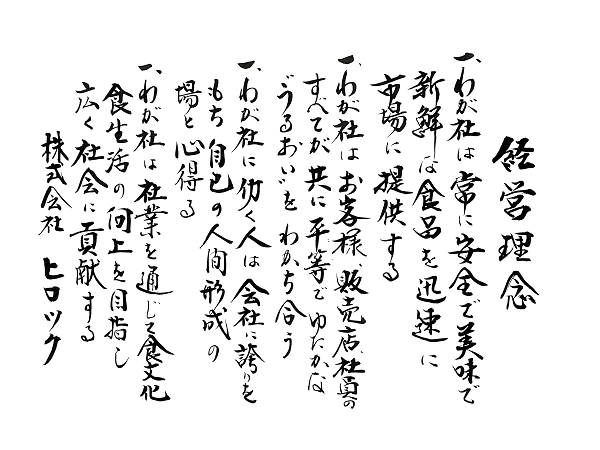 経営理念
一、わが社は常に安全で美味で
新鮮な食品を迅速に
市場に提供する
一、わが社はお客様、販売店、社員の
すべてが共に平等でゆたかな
“うるおい”をわかち合う
一、わが社に働く人は会社に誇りを
もち自己の人間形成の
場と心得る
一、わが社は社業を通じて食文化
食生活の向上を目指し
広く社会に貢献する
株式会社 ヒロツク